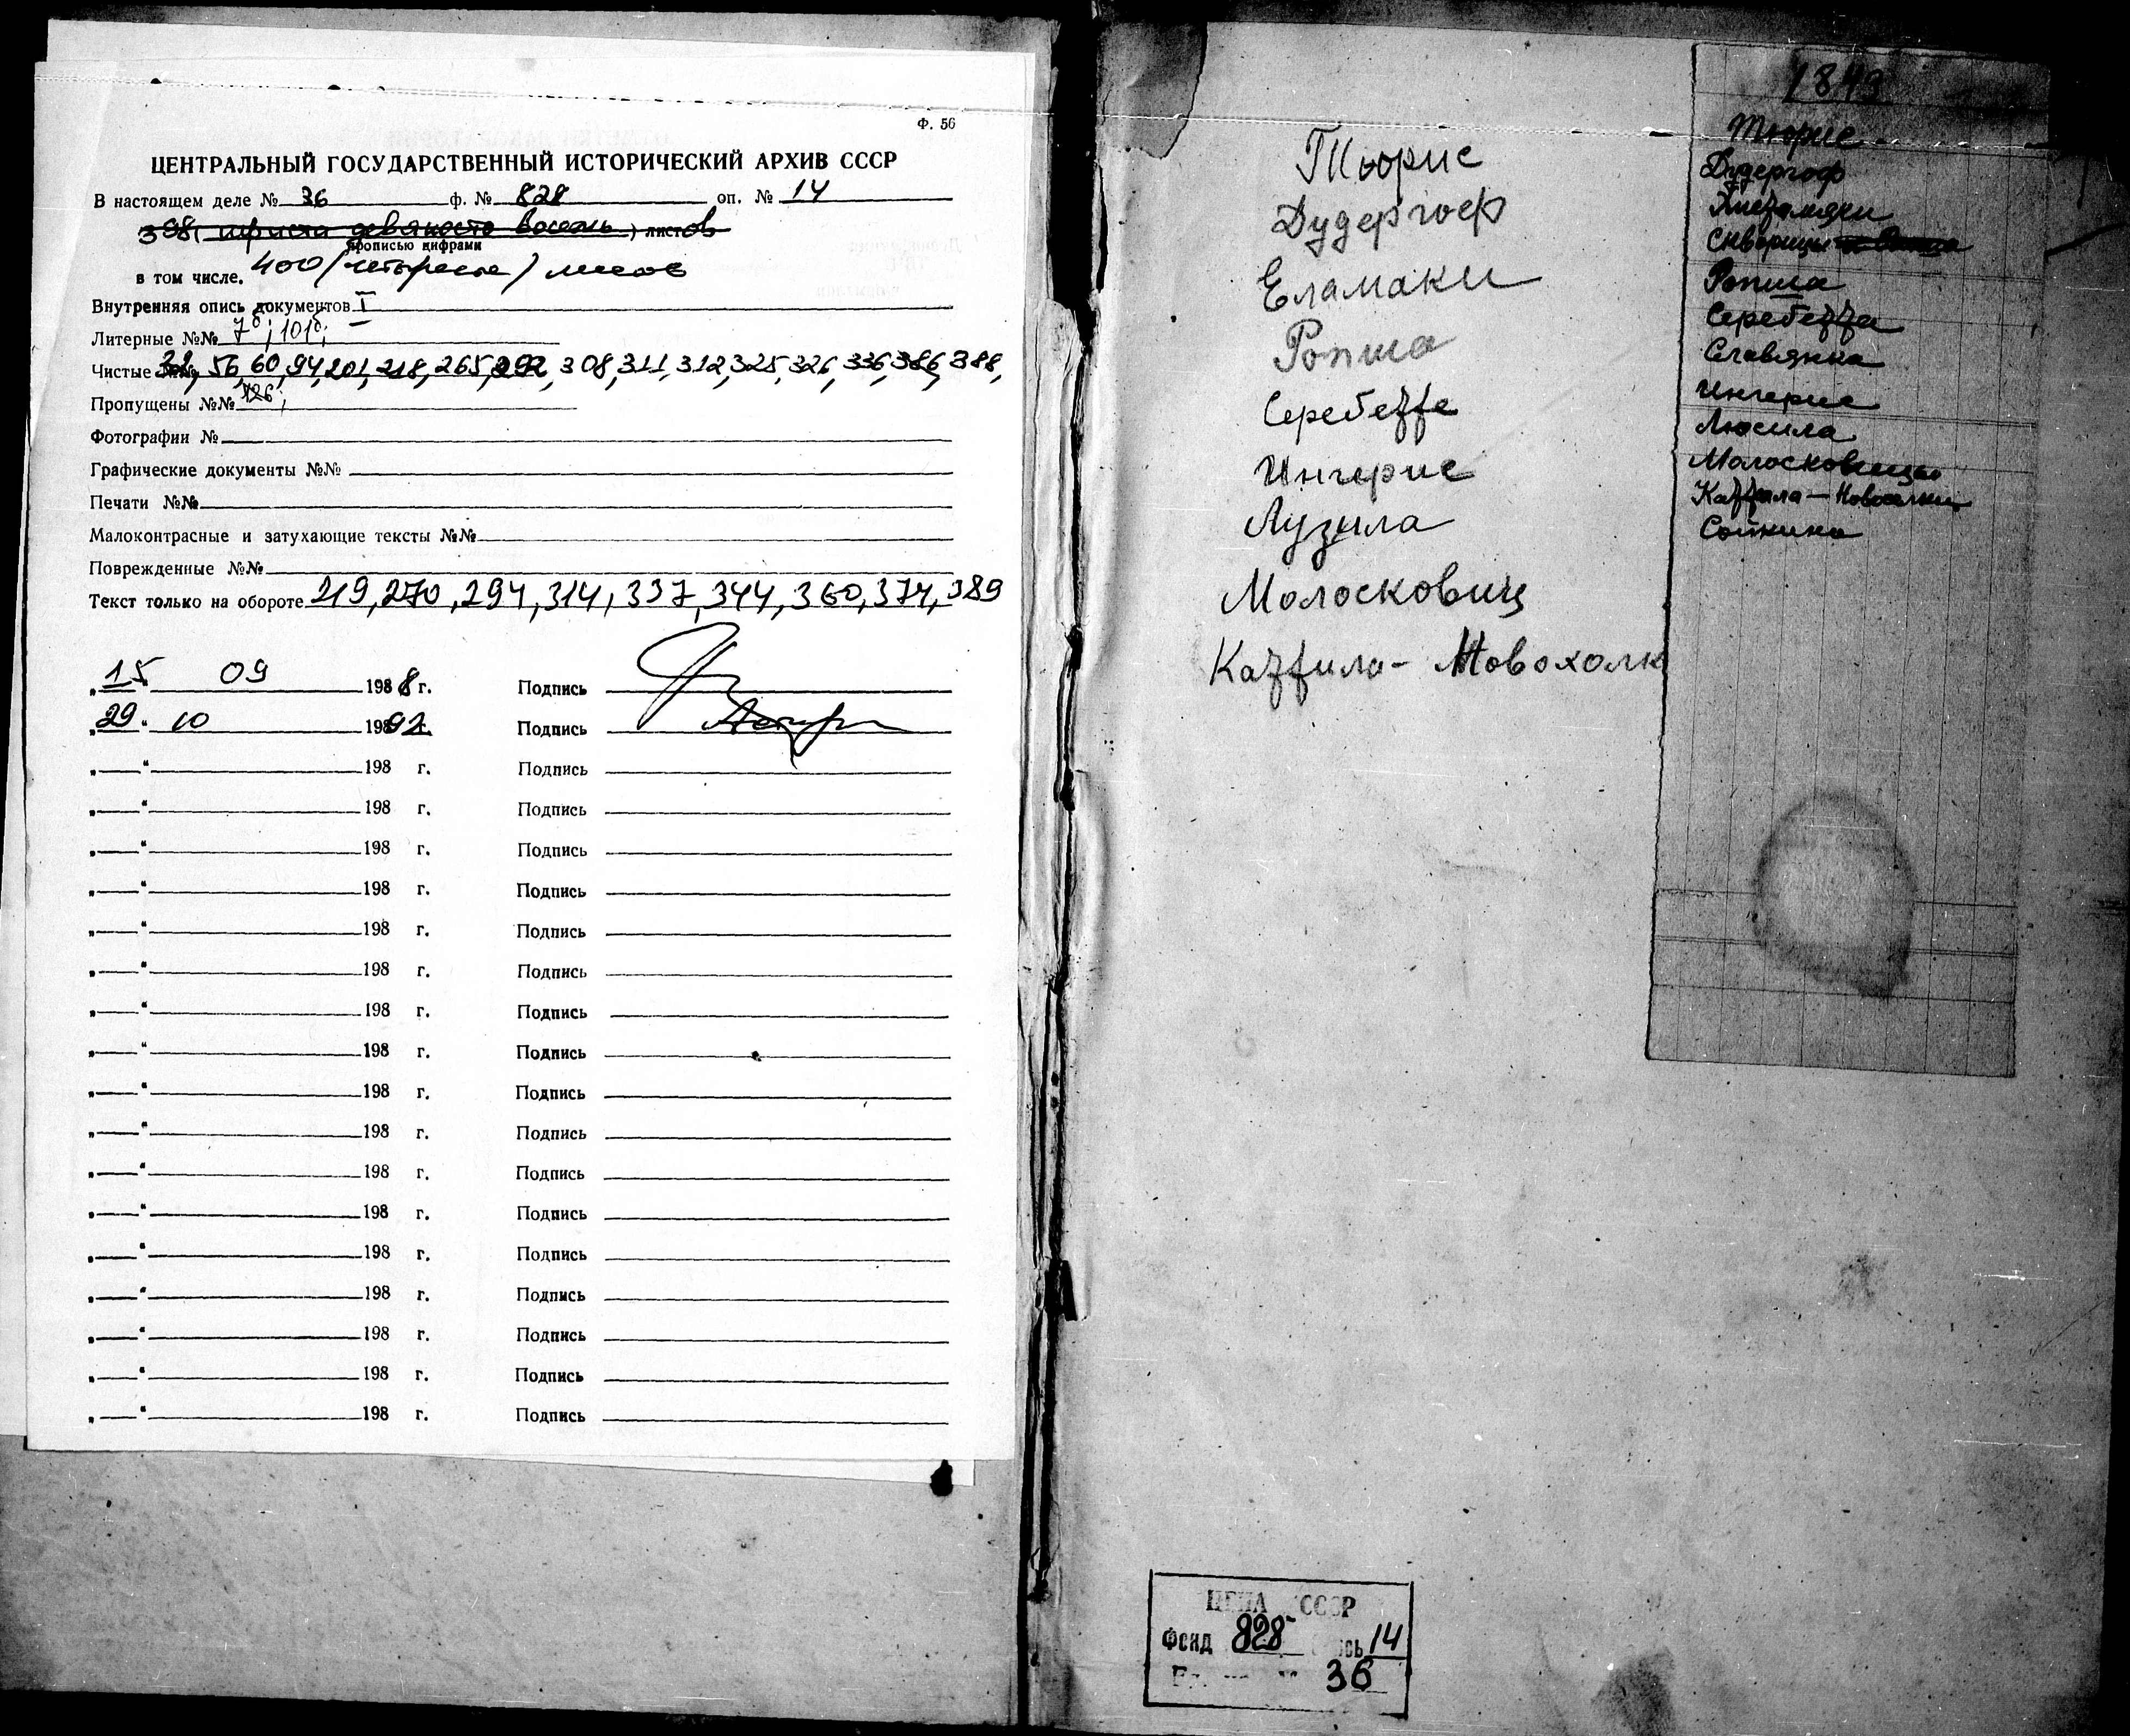 Ф. 56
ЦЕНТРАЛЬНЫЙ ГОСУДАРСТВЕННЫЙ ИСТОРИЧЕСКИЙ АРХИВ СССР
В настоящем деле № 36 ф. № 828 оп. № 14
398 (триста девяносто восемь) листов
прописью цифрами
в том числе. 400 (четыреста) листов
Внутренняя опись документов I
Литерные №№ 7б; 101б;
Чистые №№ 56, 60, 94, 201, 218, 265, 292, 308, 311, 312, 325, 326, 336, 386, 388,
Пропущены №№ 126;
Фотографии №
Графические документы №№
Печати №№
Малоконтрасные и затухающие тексты №№
Поврежденные №№
Текст только на обороте 219, 270, 294, 314, 337, 344, 360, 374, 389
„15“ 09 1988 г. Подпись
„29“ 10 1992 г. Подпись
„ “ 198 г. Подпись
„ “ 198 г. Подпись
„ “ 198 г. Подпись
„ “ 198 г. Подпись
„ “ 198 г. Подпись
„ “ 198 г. Подпись
„ “ 198 г. Подпись
„ “ 198 г. Подпись
„ “ 198 г. Подпись
„ “ 198 г. Подпись
„ “ 198 г. Подпись
„ “ 198 г. Подпись
„ “ 198 г. Подпись
„ “ 198 г. Подпись
„ “ 198 г. Подпись
„ “ 198 г. Подпись
„ “ 198 г. Подпись
Тьюрис
Дудергоф
Еламаки
Ропша
Серебетте
Ингерис
Лузила
Молосковиц
Каттила - Новохолк
1843
Тюрис
Дудергоф
Скворицы
Ропша
Серебетта
Славянка
Ингерис
Люсила
Молосковицы
Каттила - Новоселки
Сойкино
ЦГИА СССР
Фонд 828 14
36